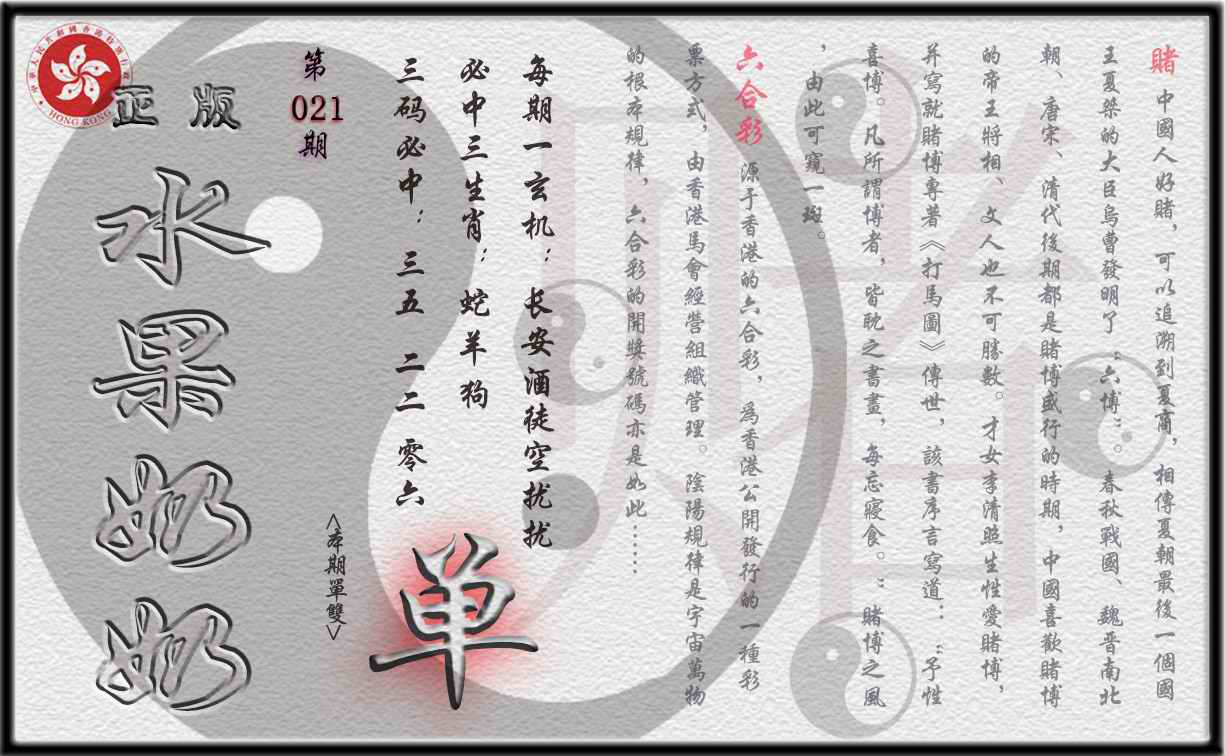 賭 中國人好賭，可以追溯到夏商，相傳夏朝最後一個國
王夏桀的大臣烏曹發明了“六博”。春秋戰國、魏晋南北
朝、唐宋、清代後期都是賭博盛行的時期，中國喜歡賭博
的帝王將相、文人也不可勝數。才女李清照生性愛賭博，
并寫就賭博專著《打馬圖》傳世，該書序言寫道：“予性
喜博。凡所謂博者，皆耽之書畫，每忘寢食。”賭博之風
，由此可窺一斑。
六合彩 源于香港的六合彩，爲香港公開發行的一種彩
票方式，由香港馬會經營組織管理。陰陽規律是宇宙萬物
的根本規律，六合彩的開獎號碼亦是如此……
每期一玄机：长安酒徒空扰扰
必中三生肖：蛇羊狗
三码必中：三五 二二 零六
单
<本期單雙>
第
021
期
正版
水果奶奶
中華人民共和國香港特別行政區
HONG KONG